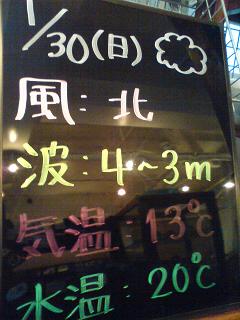 1/30(日)
風:北
波:4~3m
気温:13℃
水温:20℃